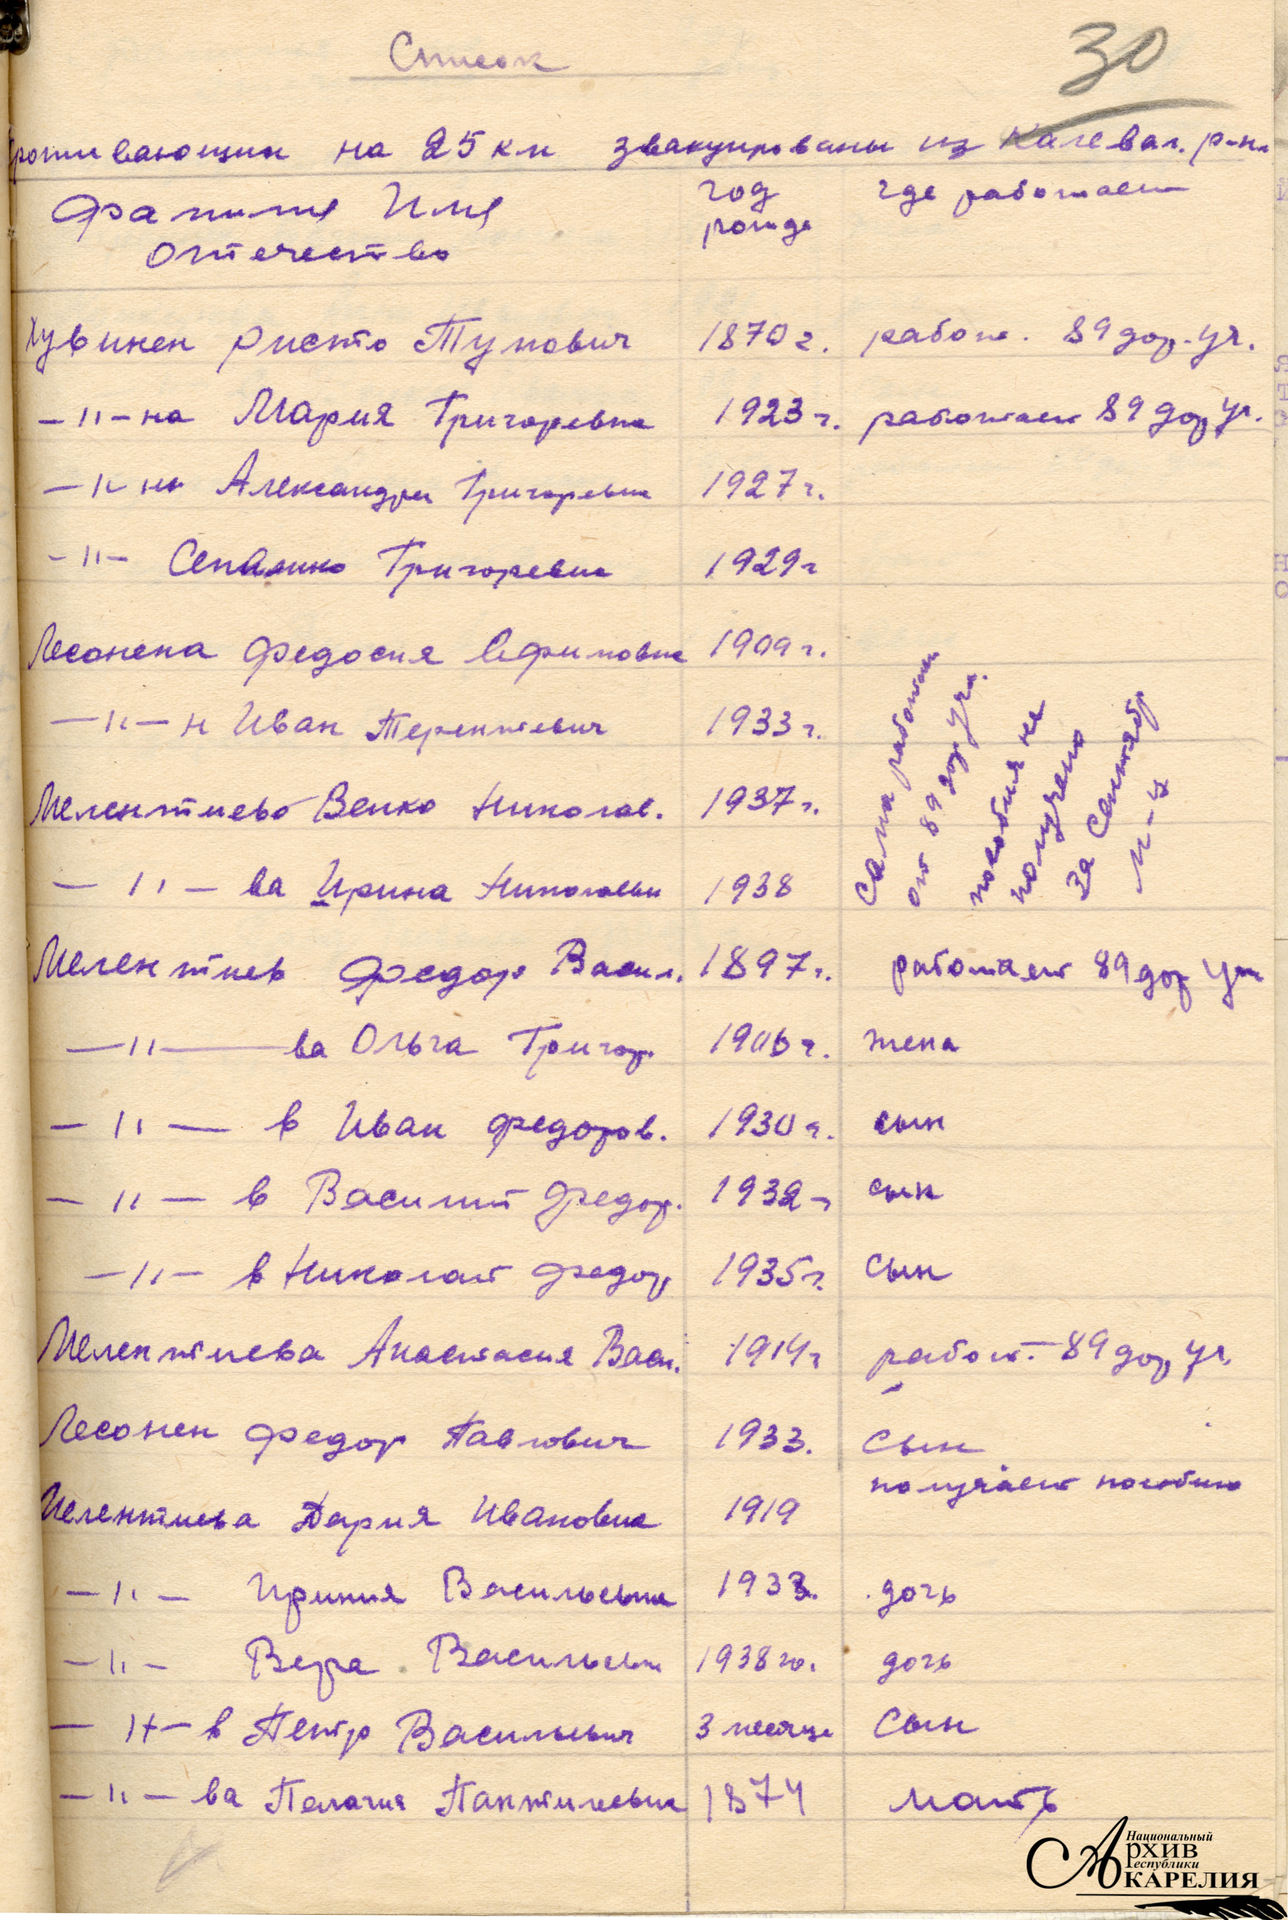 Список
30
Проживающии на 25 км эвакуированы из Калевал. р-на
Фамилия Имя Отечество
год рожде
где работает
Хувинен Ристо Тупович 1870 г. работ. 89 дор. уч.
-"-на Мария Григоревна 1923 г. работает 89 дор уч.
-"-на Александра Григоревна 1927 г.
-"- Григоревна 1929 г
Лесонена Федосия Ефимовна 1909 г.
-"-н Иван Терентиевич 1933 г.
Сама работает
от 89 дор уча.
пособия не
получено
за Сентябр
М-ц
Мелентиево Вейко Николав. 1937 г.
-"-ва Ирина Николаевн 1938
Мелентиев Федор Васил. 1897 г. работает 89 дор уч
-"-ва Ольга Григор. 1906 г. жена
-"-в Иван Федоров. 1930 г. сын
-"-в Василий Федор. 1932 г сын
-"-в Николай Федор 1935 г. сын
Мелентиева Анастасия Васи. 1914 г работ. 89 дор уч.
Лесонен Федор Павлович 1933. сын
получает пособию
Мелентиева Дария Ивановна 1919
-"- Ириния Васильевна 1933. дочь
-"- Вера Васильевн 1938 го. дочь
-"-в Петр Васильевич 3 месяце сын
-"-ва Пелагия Пантилеевна 1874 мать
Национальный
Архив
Республики
Карелия